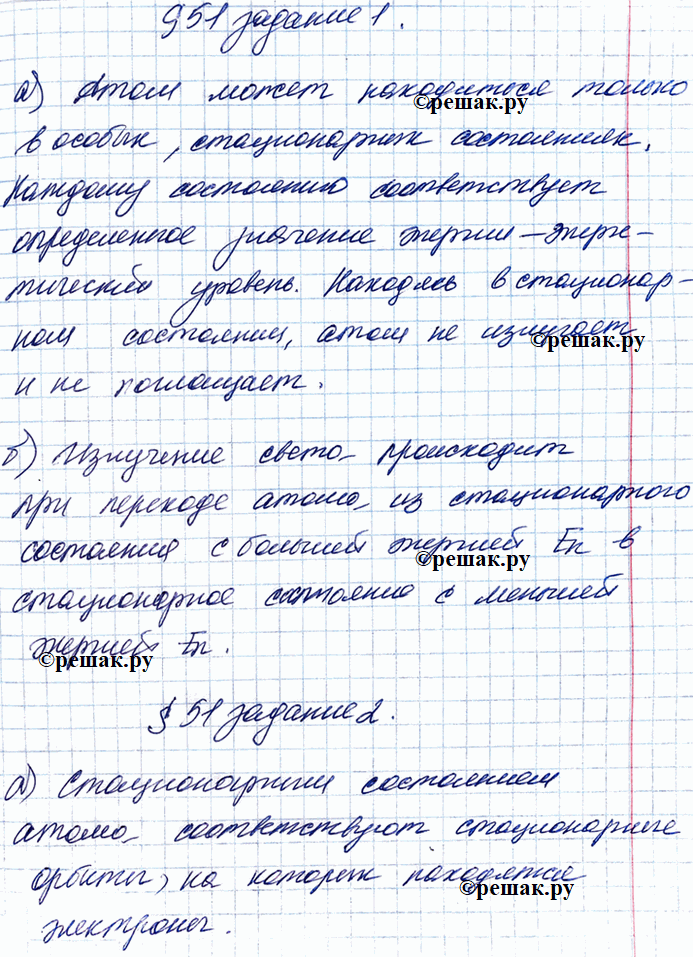 §51 задание 1.
а) Атом может находиться только
©решак.ру
в особых, стационарных состояниях.
Каждому состоянию соответствует
определенное значение энергии – энерге-
тический уровень. Находясь в стационар-
ном состоянии, атом не излучает
©решак.ру
и не поглощает.
б) Излучение света происходит
при переходе атома из стационарного
состояния с большей энергией Eк в
©решак.ру
стационарное состояние с меньшей
энергией En.
©решак.ру
§ 51 задание 2.
а) Стационарным состояниям
атома соответствуют стационарные
орбиты, на которых находятся
©решак.ру
электроны.